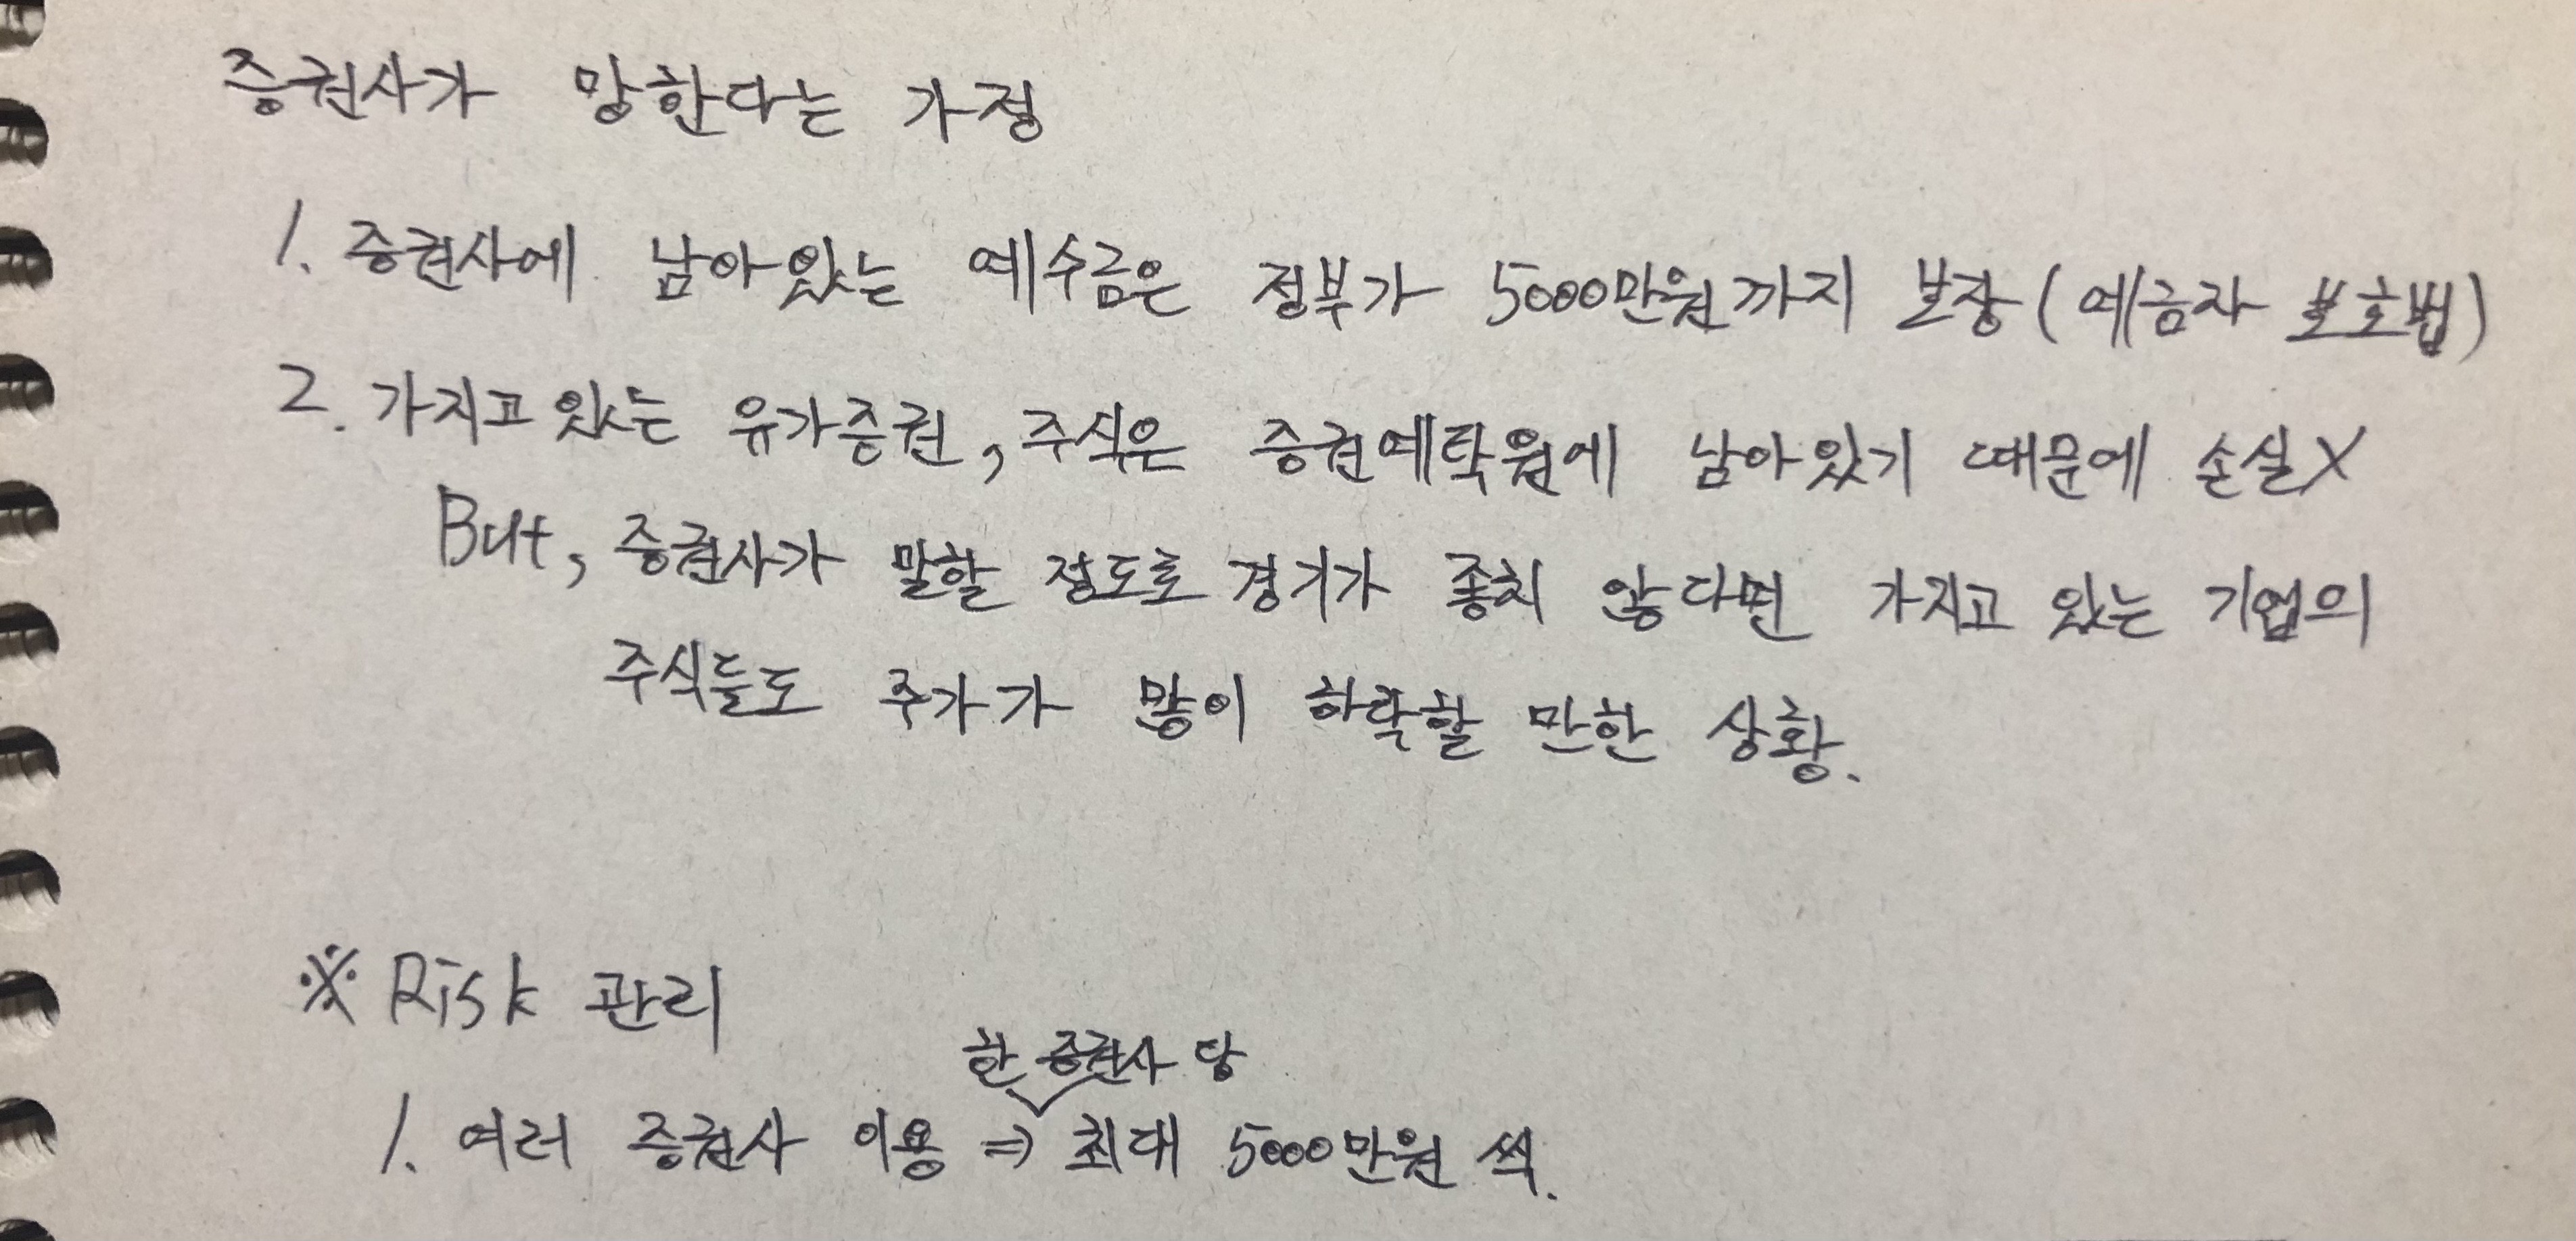 증권사가 망한다는 가정
1. 증권사에 남아있는 예수금은 정부가 5000만원까지 보장(예금자 보호법)
2. 가지고 있는 유가증권, 주식은 증권예탁원에 남아있기 때문에 손실X
But, 증권사가 말할 정도로 경기가 좋치 않다면 가지고 있는 기업의
주식들도 주가가 많이 하락할 만한 상황.
※ Risk 관리
한 증권사 당
1. 여러 증권사 이용 ⇒ 최대 5000만원 씩.